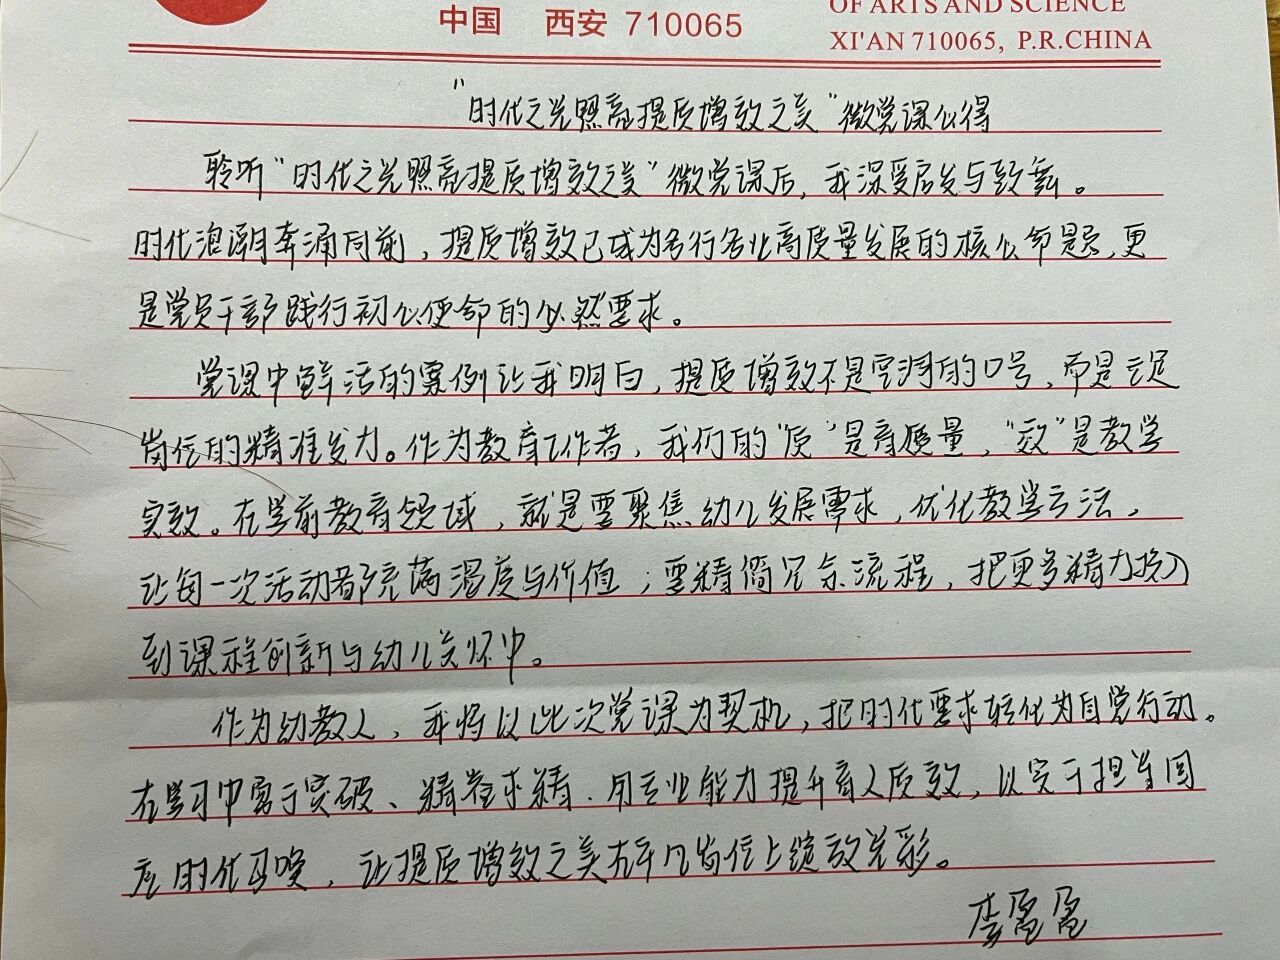 中国 西安 710065
OF ARTS AND SCIENCE
XI'AN 710065, P.R.CHINA
“时代之光照亮提质增效之美”微党课心得
聆听“时代之光照亮提质增效之美”微党课后，我深受启发与鼓舞。
时代浪潮奔涌向前，提质增效已成为各行各业高质量发展的核心命题，更
是党员干部践行初心使命的必然要求。
党课中鲜活的案例让我明白，提质增效不是空洞的口号，而是立足
岗位的精准发力。作为教育工作者，我们的“质”是育质量，“效”是教学
实效。在学前教育领域，就是要聚焦幼儿发展需求，优化教学方法，
让每一次活动都充满温度与价值；要精简冗余流程，把更多精力投入
到课程创新与幼儿关怀中。
作为幼教人，我将以此次党课为契机，把时代要求转化为自觉行动。
在学习中勇于突破、精益求精，用专业能力提升育人质效，以实干担当回
应时代召唤，让提质增效之美在平凡岗位上绽放光彩。
李盈盈